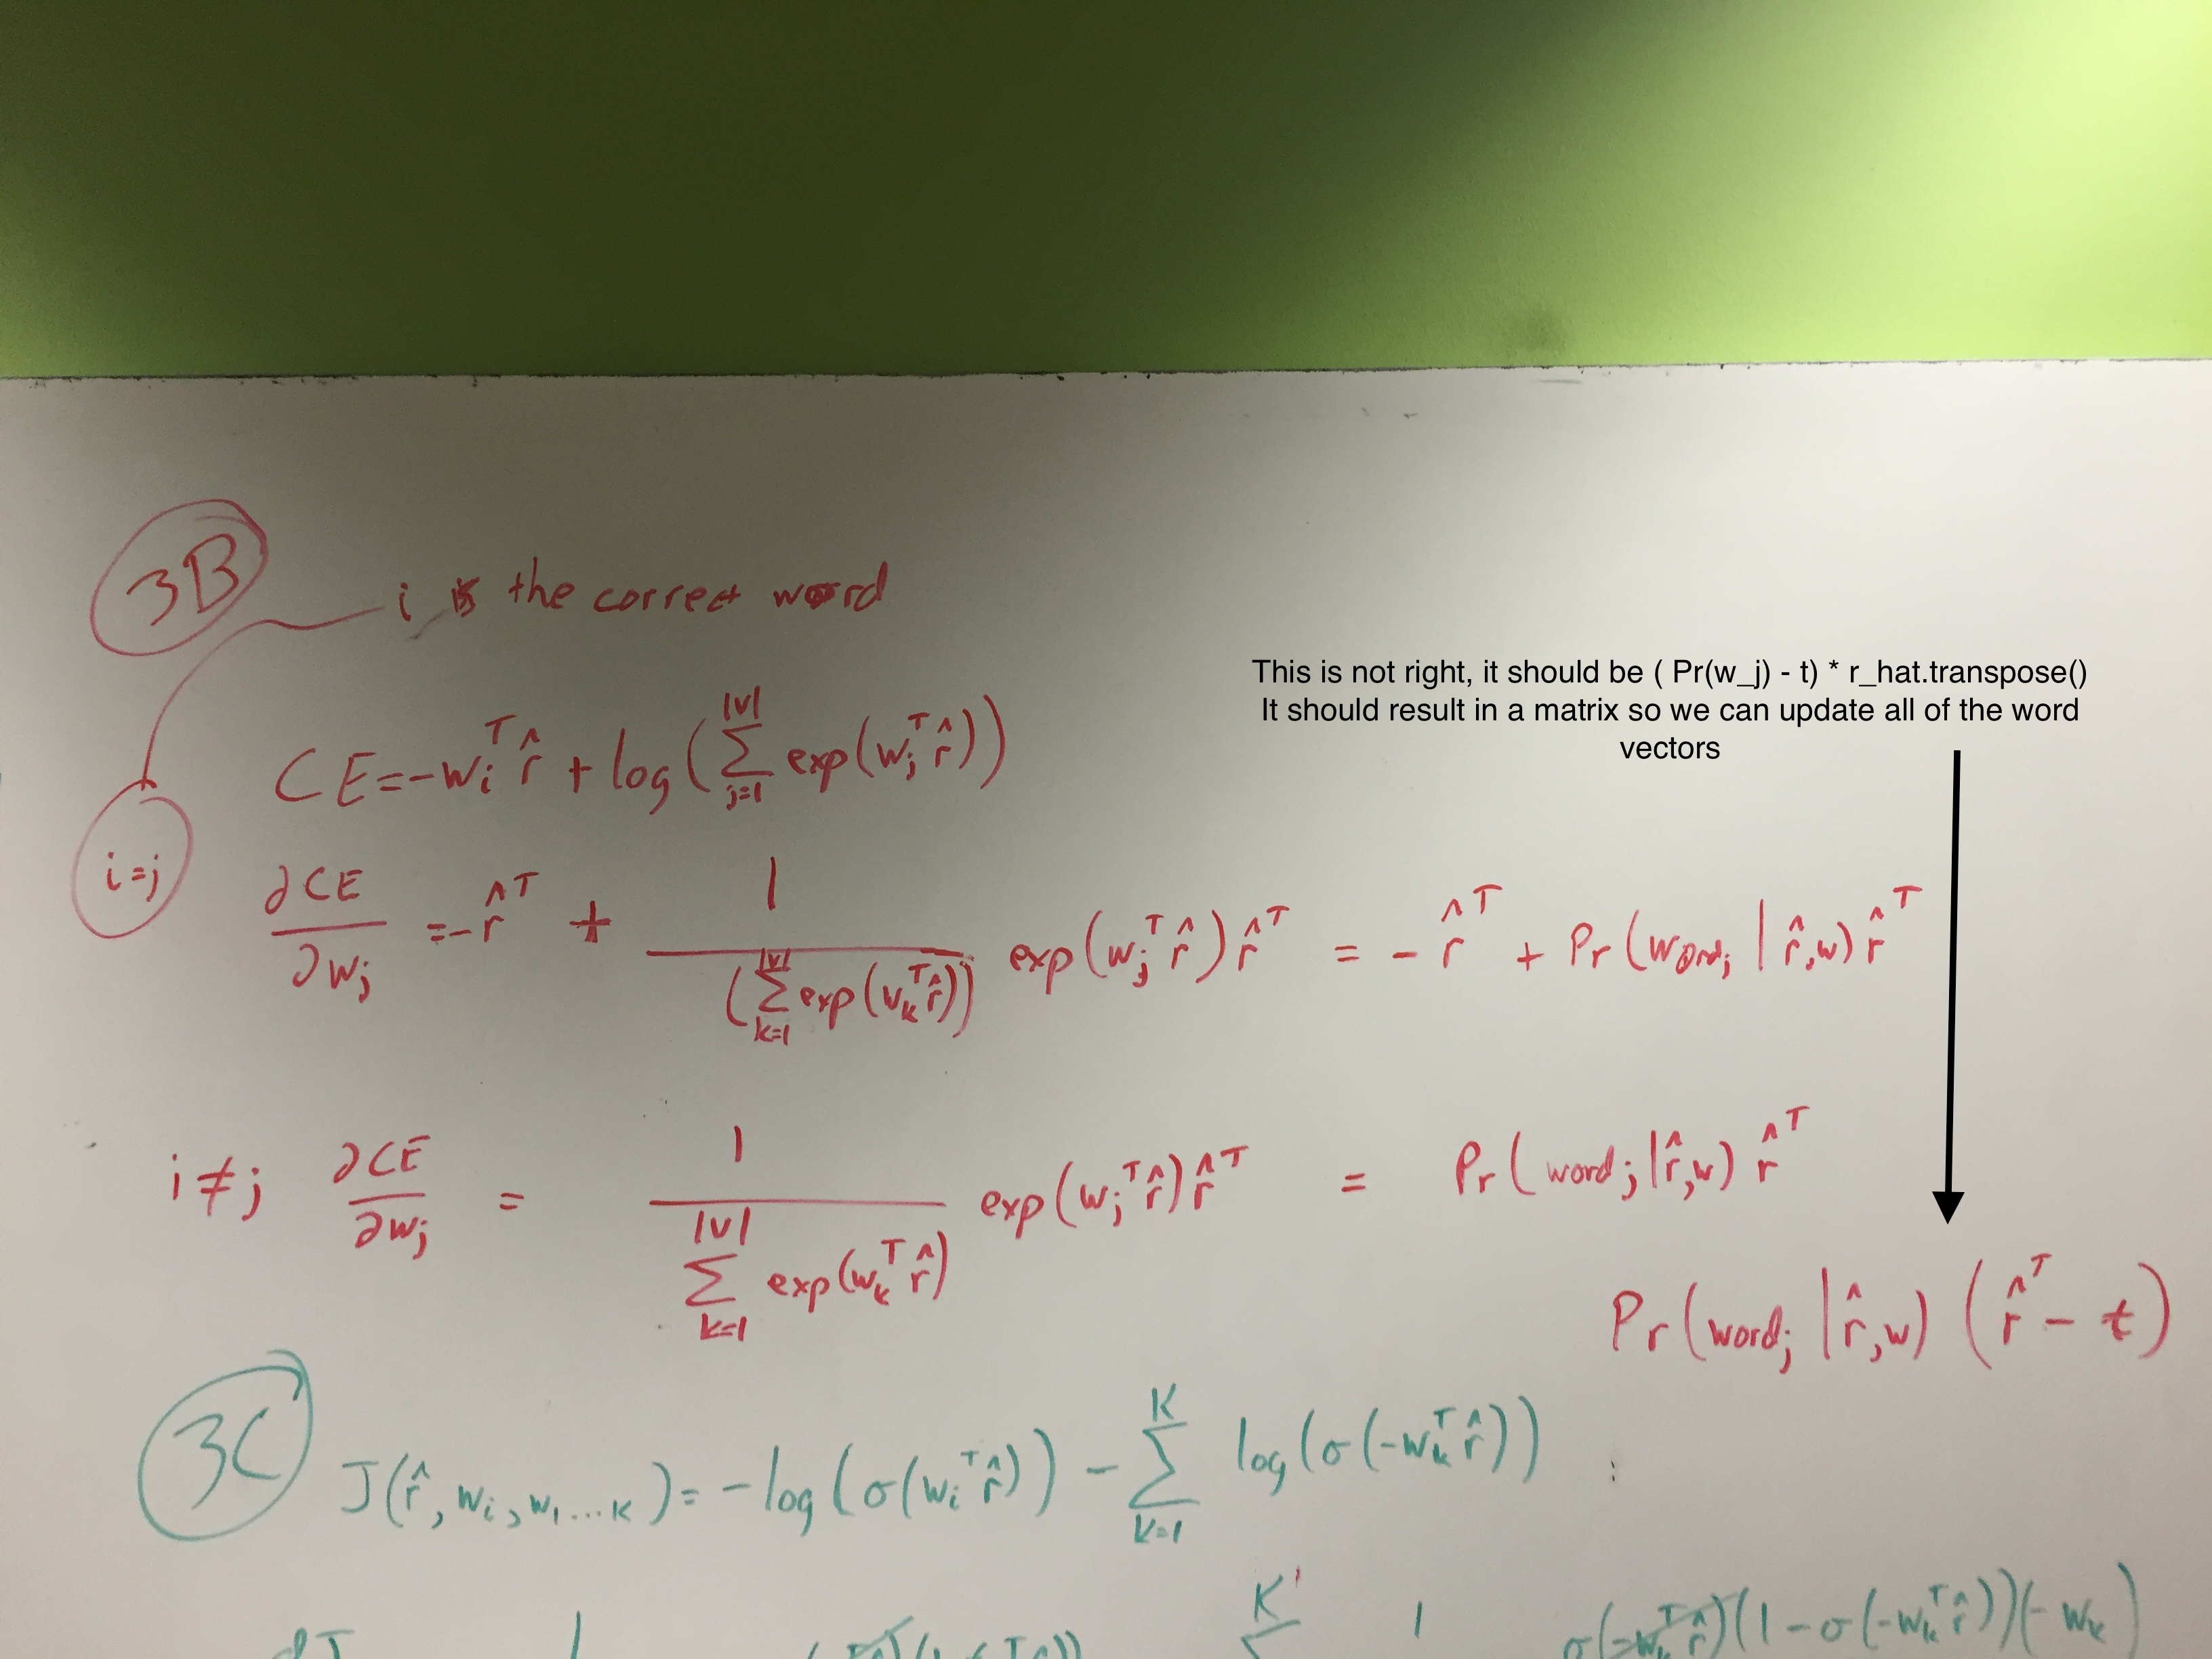 3B
i is the correct word
This is not right, it should be ( Pr(w_j) - t) * r_hat.transpose()
It should result in a matrix so we can update all of the word
vectors
CE = -w_i^T r̂ + log(∑_{j=1}^{|v|} exp(w_j^T r̂))
i=j
∂CE/∂w_j = -r̂^T + 1/(∑_{k=1}^{|v|} exp(w_k^T r̂)) exp(w_j^T r̂) r̂^T = -r̂^T + Pr(word_j | r̂,w) r̂^T
i ≠ j ∂CE/∂w_j = 1/∑_{k=1}^{|v|} exp(w_k^T r̂) exp(w_j^T r̂) r̂^T = Pr(word_j | r̂,w) r̂^T
Pr(word_j | r̂,w) (r̂^T - t)
3C
J(r̂, w_i, w_1...K) = -log(σ(w_i^T r̂)) - ∑_{k=1}^{K} log(σ(-w_k^T r̂))
∂J 1 K 1 σ(-w_k^T r̂)(1-σ(-w_k^T r̂))(-w_k)